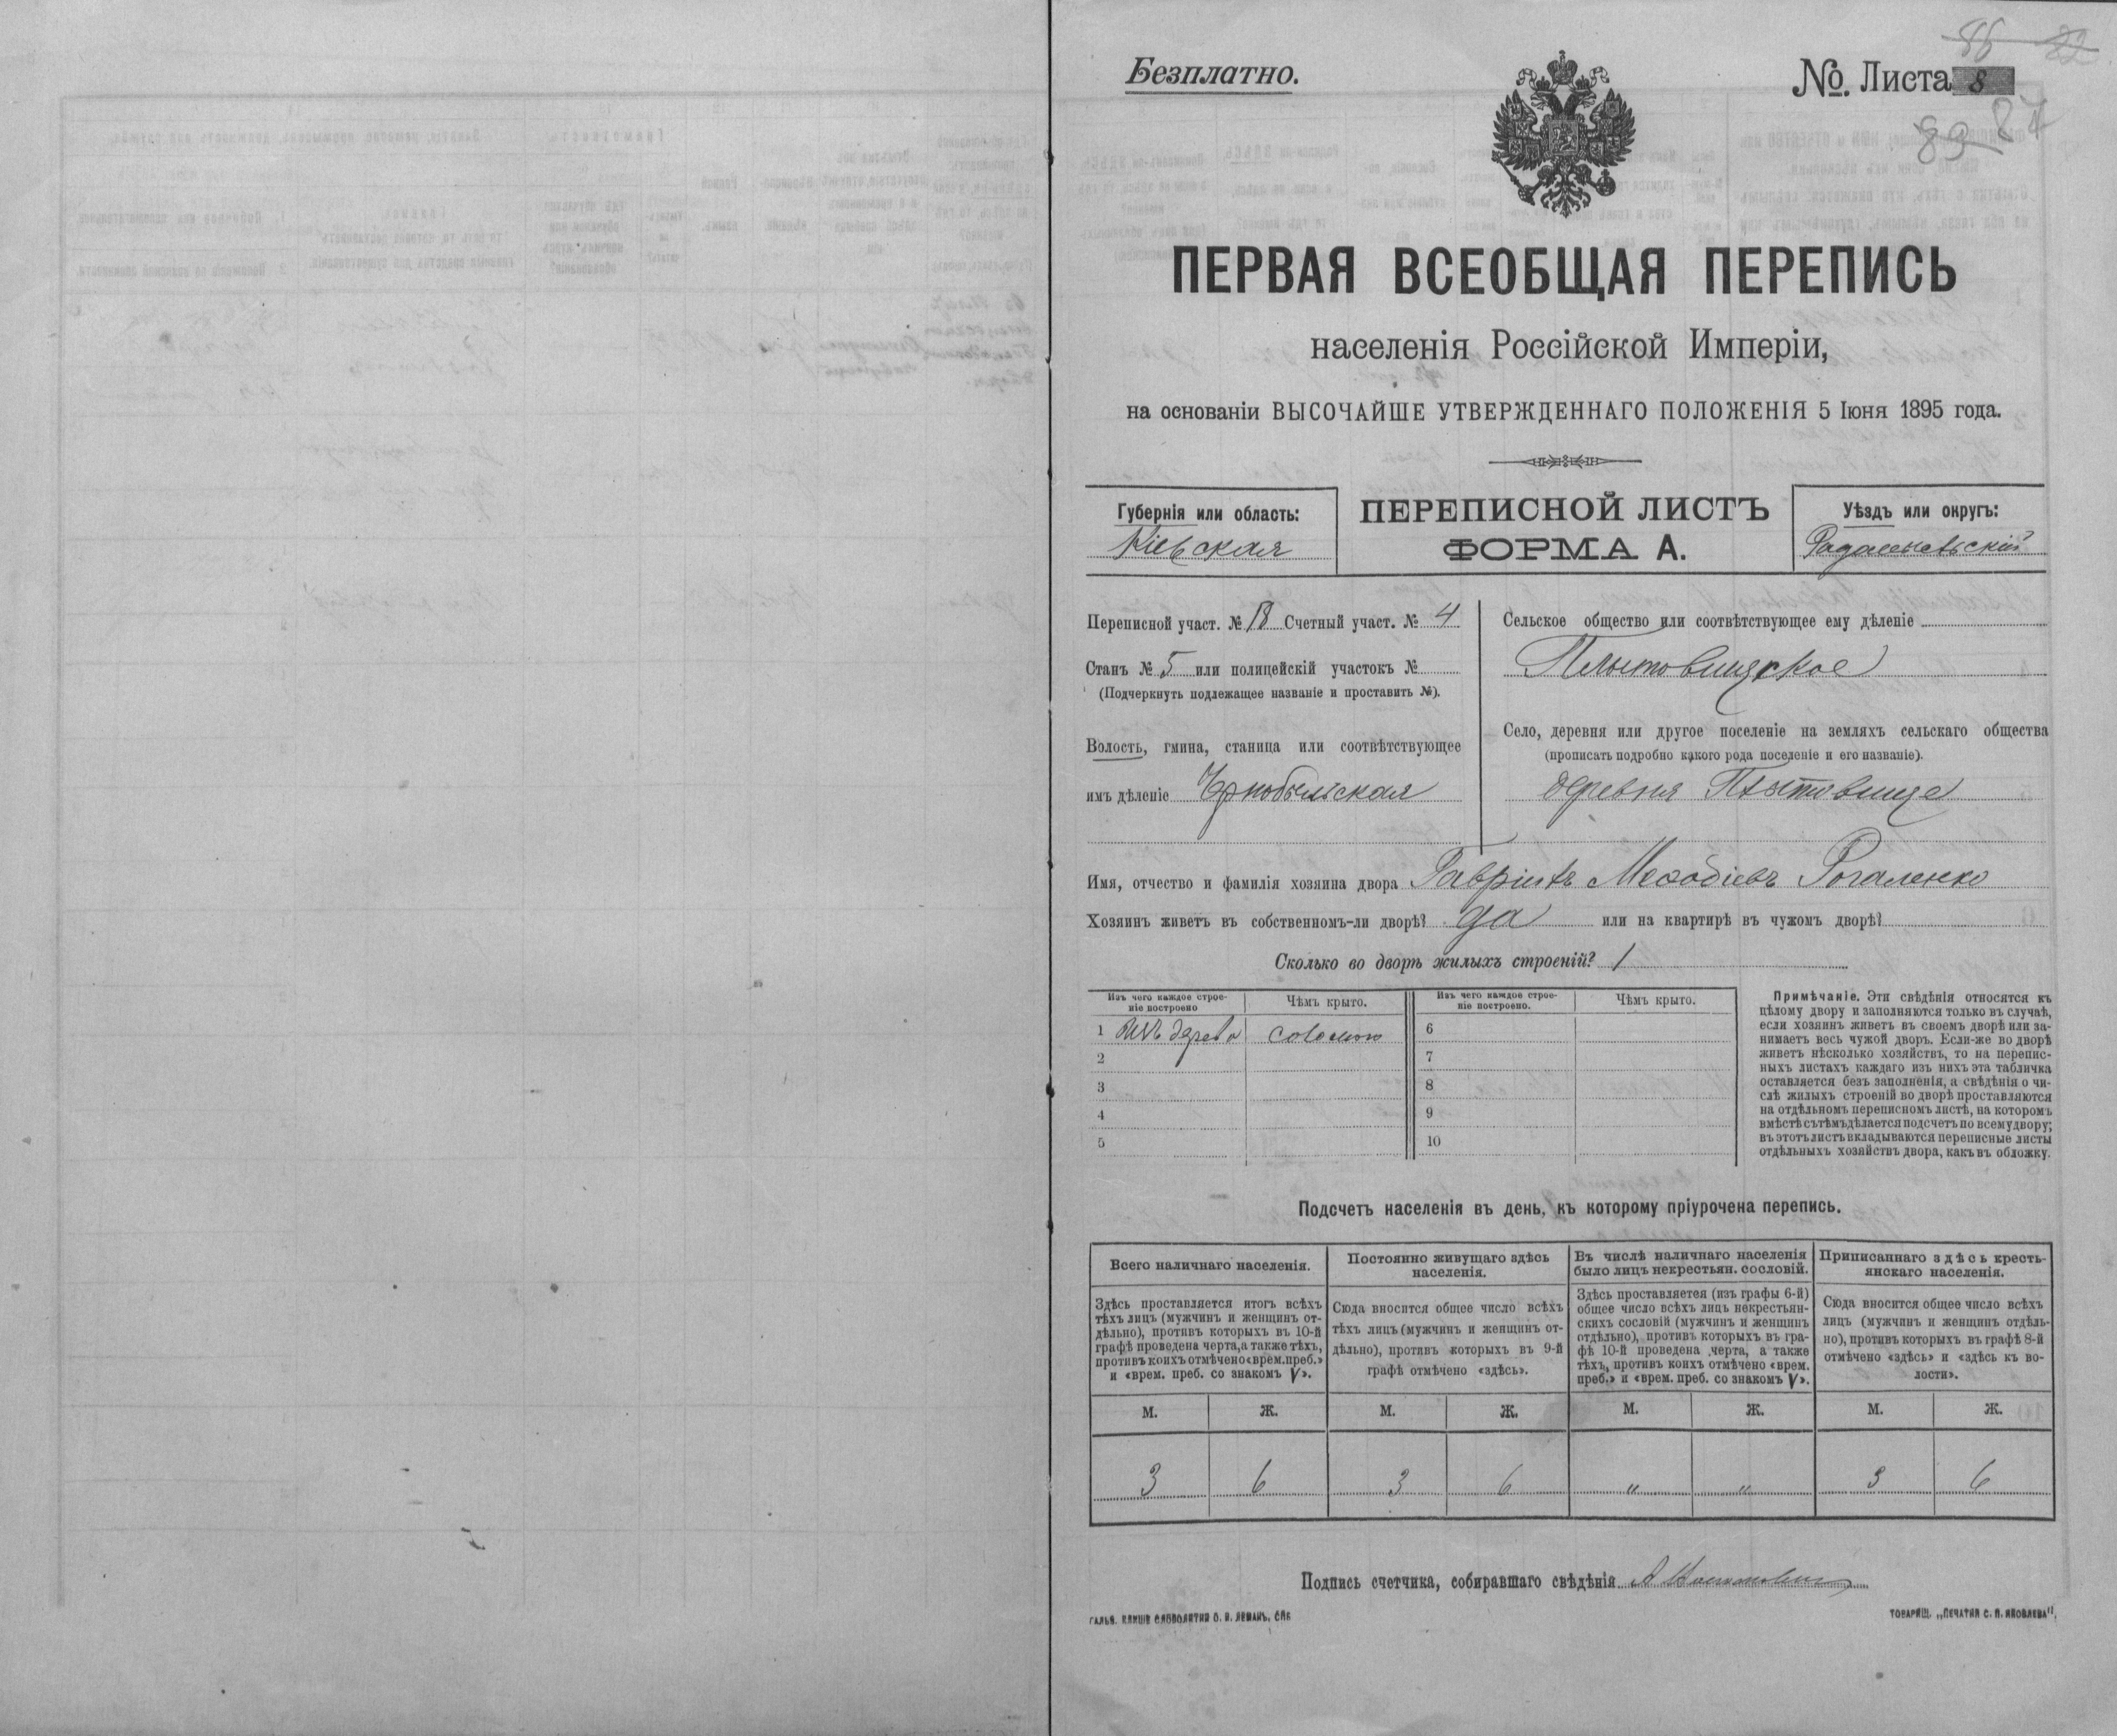 86 82
Безплатно.
№. Листа 8
83 87
ПЕРВАЯ ВСЕОБЩАЯ ПЕРЕПИСЬ
населенія Россійской Имперіи,
на основаніи ВЫСОЧАЙШЕ УТВЕРЖДЕННАГО ПОЛОЖЕНІЯ 5 Іюня 1895 года.
Губернія или область:
Кіевская
ПЕРЕПИСНОЙ ЛИСТЪ
ФОРМА А.
Уѣздъ или округъ:
Радомысльскій
Переписной участ. № Счетный участ. № 4
Станъ № 5 или полицейскій участокъ №
(Подчеркнуть подлежащее названіе и проставить №).
Волость, гмина, станица или соотвѣтствующее
имъ дѣленіе Чернобыльская
Сельское общество или соотвѣтствующее ему дѣленіе
Плютовищское
Село, деревня или другое поселеніе на земляхъ сельскаго общества
(прописать подробно какого рода поселеніе и его названіе).
деревня Плютовище
Имя, отчество и фамилія хозяина двора Гавріилъ Меѳодіевъ Рогаленко
Хозяинъ живетъ въ собственномъ-ли дворѣ? да или на квартирѣ въ чужомъ дворѣ?
Сколько во дворѣ жилыхъ строеній? 1
Изъ чего каждое строе-
ніе построено
Чѣмъ крыто.
Изъ чего каждое строе-
ніе построено.
Чѣмъ крыто.
1 Изъ дерева соломою 6
2 7
3 8
4 9
5 10
Примѣчаніе. Эти свѣдѣнія относятся къ
цѣлому двору и заполняются только въ случаѣ,
если хозяинъ живетъ въ своемъ дворѣ или за-
нимаетъ весь чужой дворъ. Если-же во дворѣ
живетъ нѣсколько хозяйствъ, то на перепис-
ныхъ листахъ каждаго изъ нихъ эта табличка
оставляется безъ заполненія, а свѣдѣнія о чи-
слѣ жилыхъ строеній во дворѣ проставляются
на отдѣльномъ переписномъ листѣ, на которомъ
вмѣстѣ съ тѣмъ дѣлается подсчетъ по всему двору;
въ этотъ листъ вкладываются переписные листы
отдѣльныхъ хозяйствъ двора, какъ въ обложку.
Подсчетъ населенія въ день, къ которому пріурочена перепись.
Всего наличнаго населенія.
Постоянно живущаго здѣсь
населенія.
Въ числѣ наличнаго населенія
было лицъ некрестьян. сословій.
Приписаннаго здѣсь кресть-
янскаго населенія.
Здѣсь проставляется итогъ всѣхъ
тѣхъ лицъ (мужчинъ и женщинъ от-
дѣльно), противъ которыхъ въ 10-й
графѣ проведена черта, а также тѣхъ,
противъ коихъ отмѣчено «врем. преб.»
и «врем. преб. со знакомъ V».
Сюда вносится общее число всѣхъ
тѣхъ лицъ (мужчинъ и женщинъ от-
дѣльно), противъ которыхъ въ 9-й
графѣ отмѣчено «здѣсь».
Здѣсь проставляется (изъ графы 6-й)
общее число всѣхъ лицъ некрестьян-
скихъ сословій (мужчинъ и женщинъ
отдѣльно), противъ которыхъ въ гра-
фѣ 10-й проведена черта, а также
тѣхъ, противъ коихъ отмѣчено «врем.
преб.» и «врем. преб. со знакомъ V».
Сюда вносится общее число всѣхъ
лицъ (мужчинъ и женщинъ отдѣль-
но), противъ которыхъ въ графѣ 8-й
отмѣчено «здѣсь» и «здѣсь къ во-
лости».
М. Ж. М. Ж. М. Ж. М. Ж.
3 6 3 6 „ „ 3 6
Подпись счетчика, собиравшаго свѣдѣнія
ГАЛЬВ. КЛИШЕ СЛОВОЛИТНИ О. И. ЛЕМАНЪ, СПБ
ТОВАРИЩ. „ПЕЧАТНЯ С. П. ЯКОВЛЕВА".